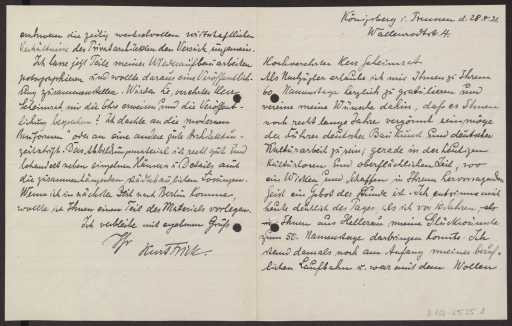 Königsberg i. Preussen d. 28.4.21.
Wallenrodtstr. 4.
Hochverehrter Herr Geheimrat
Als Nachzügler erlaube ich mir Ihnen zu Ihrem
60 Namenstage herzlich zu gratulieren und
vereine meine Wünsche dahin, dass es Ihnen
noch recht lange Jahre vergönnt sein möge
der Führer deutscher Baukunst und deutscher
Werkarbeit zu sein, gerade in der heutigen
kulturlosen und oberflächlichen Zeit, wo
ein Wirken und Schaffen in Ihrem hervorragenden
Geist ein Gebot der Stunde ist. Ich entsinne mich
heute deutlich des Tages, als ich vor Jahren, als
Ihnen aus Hellerau meine Glückwünsche
zum 50. Namenstage darbringen konnte. Ich
stand damals noch am Anfang meiner beruf-
lichen Laufbahn u. war mit dem Wollen
wechselvollen wirtschaftlichen
Verhältnisse des Privatarchitekten den Versuch
Ich lasse jetzt Teile meiner Arbeiten
photographieren und wollte daraus eine Veröffentlich-
ung zusammenstellen. Würden Sie, verehrter Herr
Geheimrat mir die Ehre erweisen und die Veröffent-
lichung begleiten? Ich dachte an die „modernen
Bauformen" oder an eine andere gute Architektur-
zeitschrift. Das Abbildungsmaterial ist recht gut und
lohnend neben einzelnen Häusern u. Details auch
die zusammenhängenden städtebaulichen Lösungen.
Wenn ich in nächster Zeit nach Berlin komme,
wollte ich Ihnen einen Teil des Materials vorlegen.
Ich verbleibe mit ergebenem Gruß
Ihr
Kurt Frick.